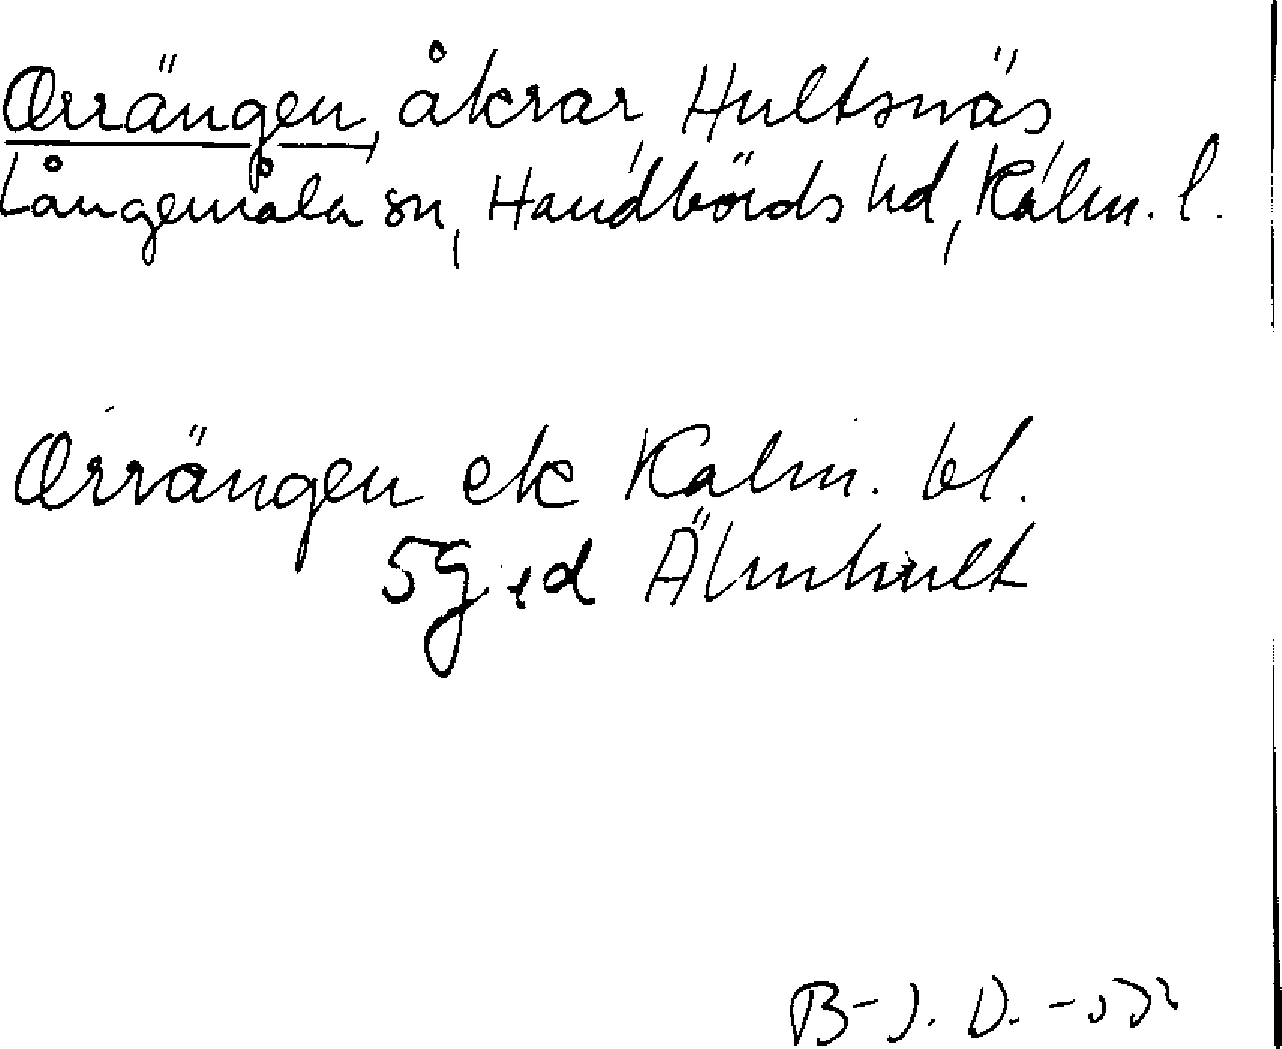 Orrängen, åkrar, Hultsnäs,
Långemåla sn, Handbörds hd, Kalm. l.
Orrängen ek Kalm. bl.
5G, d Älmhult
B-J. D.